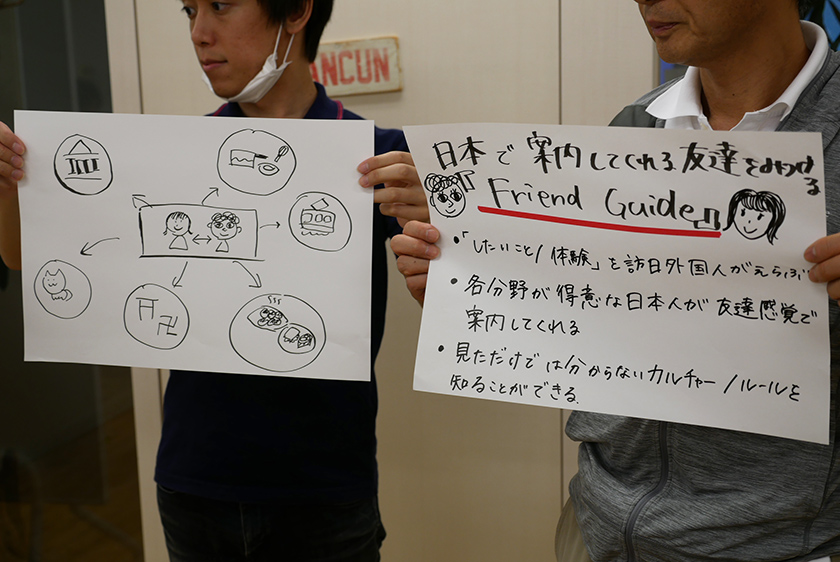 ANCUN
卍
日本で案内してくれる友達をみつける
Friend Guide
・「したいこと/体験」を訪日外国人がえらぶ
・各分野が得意な日本人が友達感覚で
案内してくれる
・見ただけでは分からないカルチャー/ルールを
知ることができる.